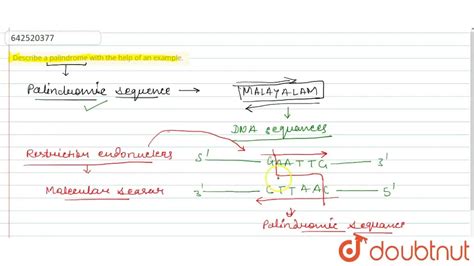 642520377
Describe a palindrome with the help of an example.
Palindromic sequence → MALAYALAM
DNA sequences
Restriction endonucleus
5' GAATTG 3'
Molecular scissor
3' CTTAAC 5'
Palindromic sequence
doubtnut